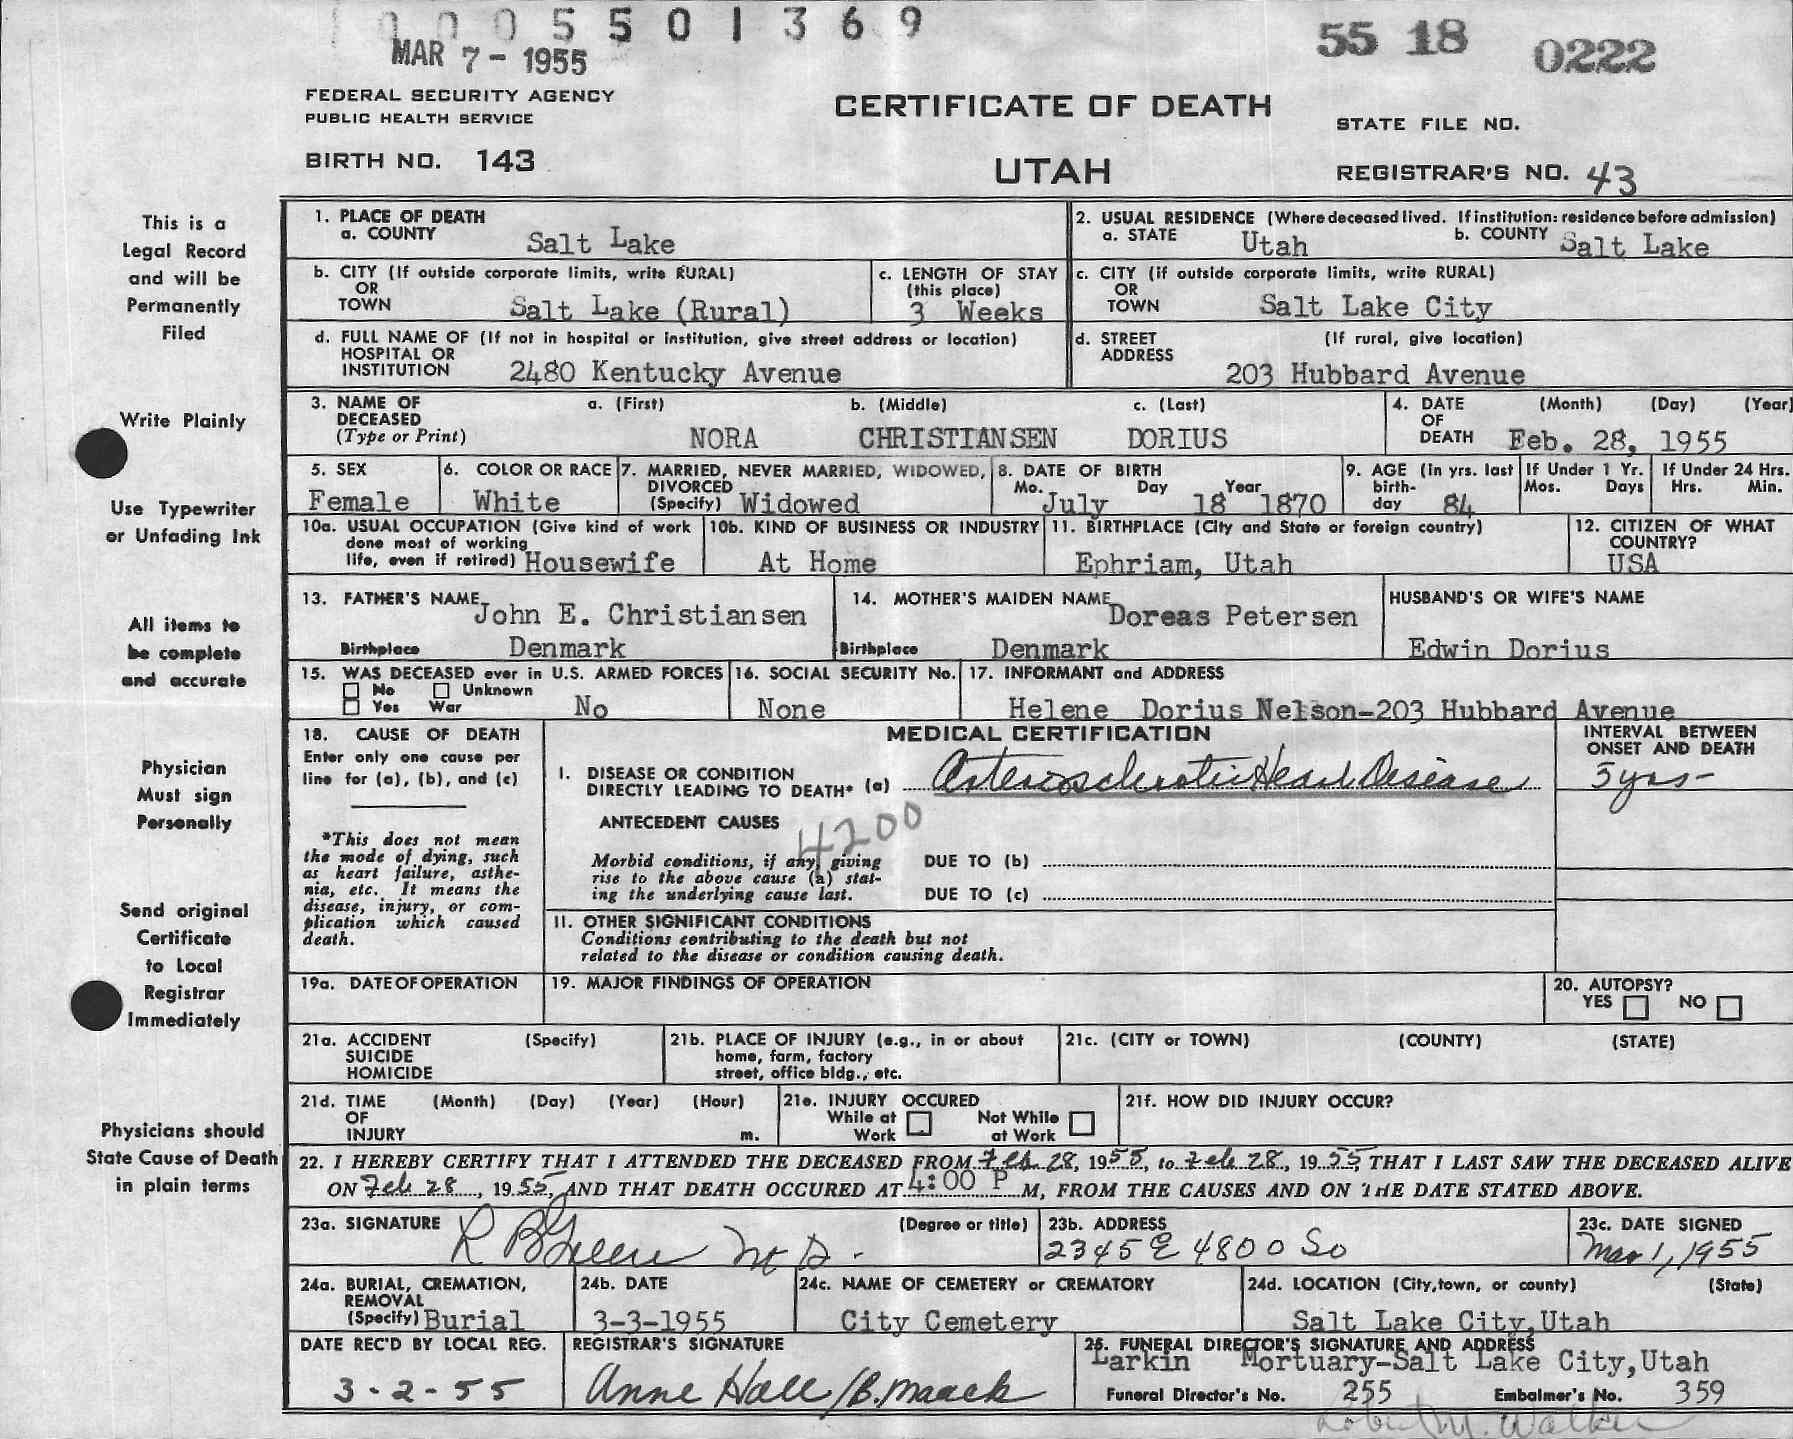 0005501369
MAR 7 - 1955
55 18 0222
FEDERAL SECURITY AGENCY
PUBLIC HEALTH SERVICE
CERTIFICATE OF DEATH
STATE FILE NO.
BIRTH NO. 143
UTAH
REGISTRAR'S NO. 43
This is a
Legal Record
and will be
Permanently
Filed
Write Plainly
Use Typewriter
or Unfading Ink
All items to
be complete
and accurate
Physician
Must sign
Personally
Send original
Certificate
to Local
Registrar
Immediately
Physicians should
State Cause of Death
in plain terms
1. PLACE OF DEATH
a. COUNTY Salt Lake
2. USUAL RESIDENCE (Where deceased lived. If institution: residence before admission)
a. STATE Utah b. COUNTY Salt Lake
b. CITY (If outside corporate limits, write RURAL)
OR
TOWN Salt Lake (Rural)
c. LENGTH OF STAY
(this place)
3 Weeks
c. CITY (if outside corporate limits, write RURAL)
OR
TOWN Salt Lake City
d. FULL NAME OF (If not in hospital or institution, give street address or location)
HOSPITAL OR
INSTITUTION 2480 Kentucky Avenue
d. STREET (If rural, give location)
ADDRESS
203 Hubbard Avenue
3. NAME OF a. (First) b. (Middle) c. (Last)
DECEASED
(Type or Print) NORA CHRISTIANSEN DORIUS
4. DATE (Month) (Day) (Year)
OF
DEATH Feb. 28, 1955
5. SEX
Female
6. COLOR OR RACE
White
7. MARRIED, NEVER MARRIED, WIDOWED,
DIVORCED
(Specify) Widowed
8. DATE OF BIRTH
Mo. Day Year
July 18 1870
9. AGE (in yrs. last
birth-
day 84
If Under 1 Yr.
Mos. Days
If Under 24 Hrs.
Hrs. Min.
10a. USUAL OCCUPATION (Give kind of work
done most of working
life, even if retired) Housewife
10b. KIND OF BUSINESS OR INDUSTRY
At Home
11. BIRTHPLACE (City and State or foreign country)
Ephriam, Utah
12. CITIZEN OF WHAT
COUNTRY?
USA
13. FATHER'S NAME John E. Christiansen
Birthplace Denmark
14. MOTHER'S MAIDEN NAME Doreas Petersen
Birthplace Denmark
HUSBAND'S OR WIFE'S NAME
Edwin Dorius
15. WAS DECEASED ever in U.S. ARMED FORCES
No Unknown
Yes War No
16. SOCIAL SECURITY No.
None
17. INFORMANT and ADDRESS
Helene Dorius Nelson-203 Hubbard Avenue
18. CAUSE OF DEATH
Enter only one cause per
line for (a), (b), and (c)
*This does not mean
the mode of dying, such
as heart failure, asthe-
nia, etc. It means the
disease, injury, or com-
plication which caused
death.
MEDICAL CERTIFICATION
INTERVAL BETWEEN
ONSET AND DEATH
I. DISEASE OR CONDITION
DIRECTLY LEADING TO DEATH* (a) Arteriosclerotic Heart Disease 5 yrs-
ANTECEDENT CAUSES
4200
Morbid conditions, if any, giving
rise to the above cause (a) stat-
ing the underlying cause last.
DUE TO (b)
DUE TO (c)
II. OTHER SIGNIFICANT CONDITIONS
Conditions contributing to the death but not
related to the disease or condition causing death.
19a. DATE OF OPERATION
19. MAJOR FINDINGS OF OPERATION
20. AUTOPSY?
YES NO
21a. ACCIDENT (Specify)
SUICIDE
HOMICIDE
21b. PLACE OF INJURY (e.g., in or about
home, farm, factory
street, office bldg., etc.
21c. (CITY or TOWN) (COUNTY) (STATE)
21d. TIME (Month) (Day) (Year) (Hour)
OF
INJURY m.
21e. INJURY OCCURED
While at Not While
Work at Work
21f. HOW DID INJURY OCCUR?
22. I HEREBY CERTIFY THAT I ATTENDED THE DECEASED FROM Feb 28, 1955, to Feb 28, 1955, THAT I LAST SAW THE DECEASED ALIVE
ON Feb 28, 1955, AND THAT DEATH OCCURED AT 4:00 P M, FROM THE CAUSES AND ON THE DATE STATED ABOVE.
23a. SIGNATURE (Degree or title)
R B Greene M D.
23b. ADDRESS
2345 E 4800 So
23c. DATE SIGNED
Mar 1, 1955
24a. BURIAL, CREMATION,
REMOVAL
(Specify) Burial
24b. DATE
3-3-1955
24c. NAME OF CEMETERY or CREMATORY
City Cemetery
24d. LOCATION (City, town, or county) (State)
Salt Lake City, Utah
DATE REC'D BY LOCAL REG.
3-2-55
REGISTRAR'S SIGNATURE
Anne Hall /B. Maack
25. FUNERAL DIRECTOR'S SIGNATURE AND ADDRESS
Larkin Mortuary-Salt Lake City, Utah
Funeral Director's No. 255 Embalmer's No. 359
Robert M. Walker